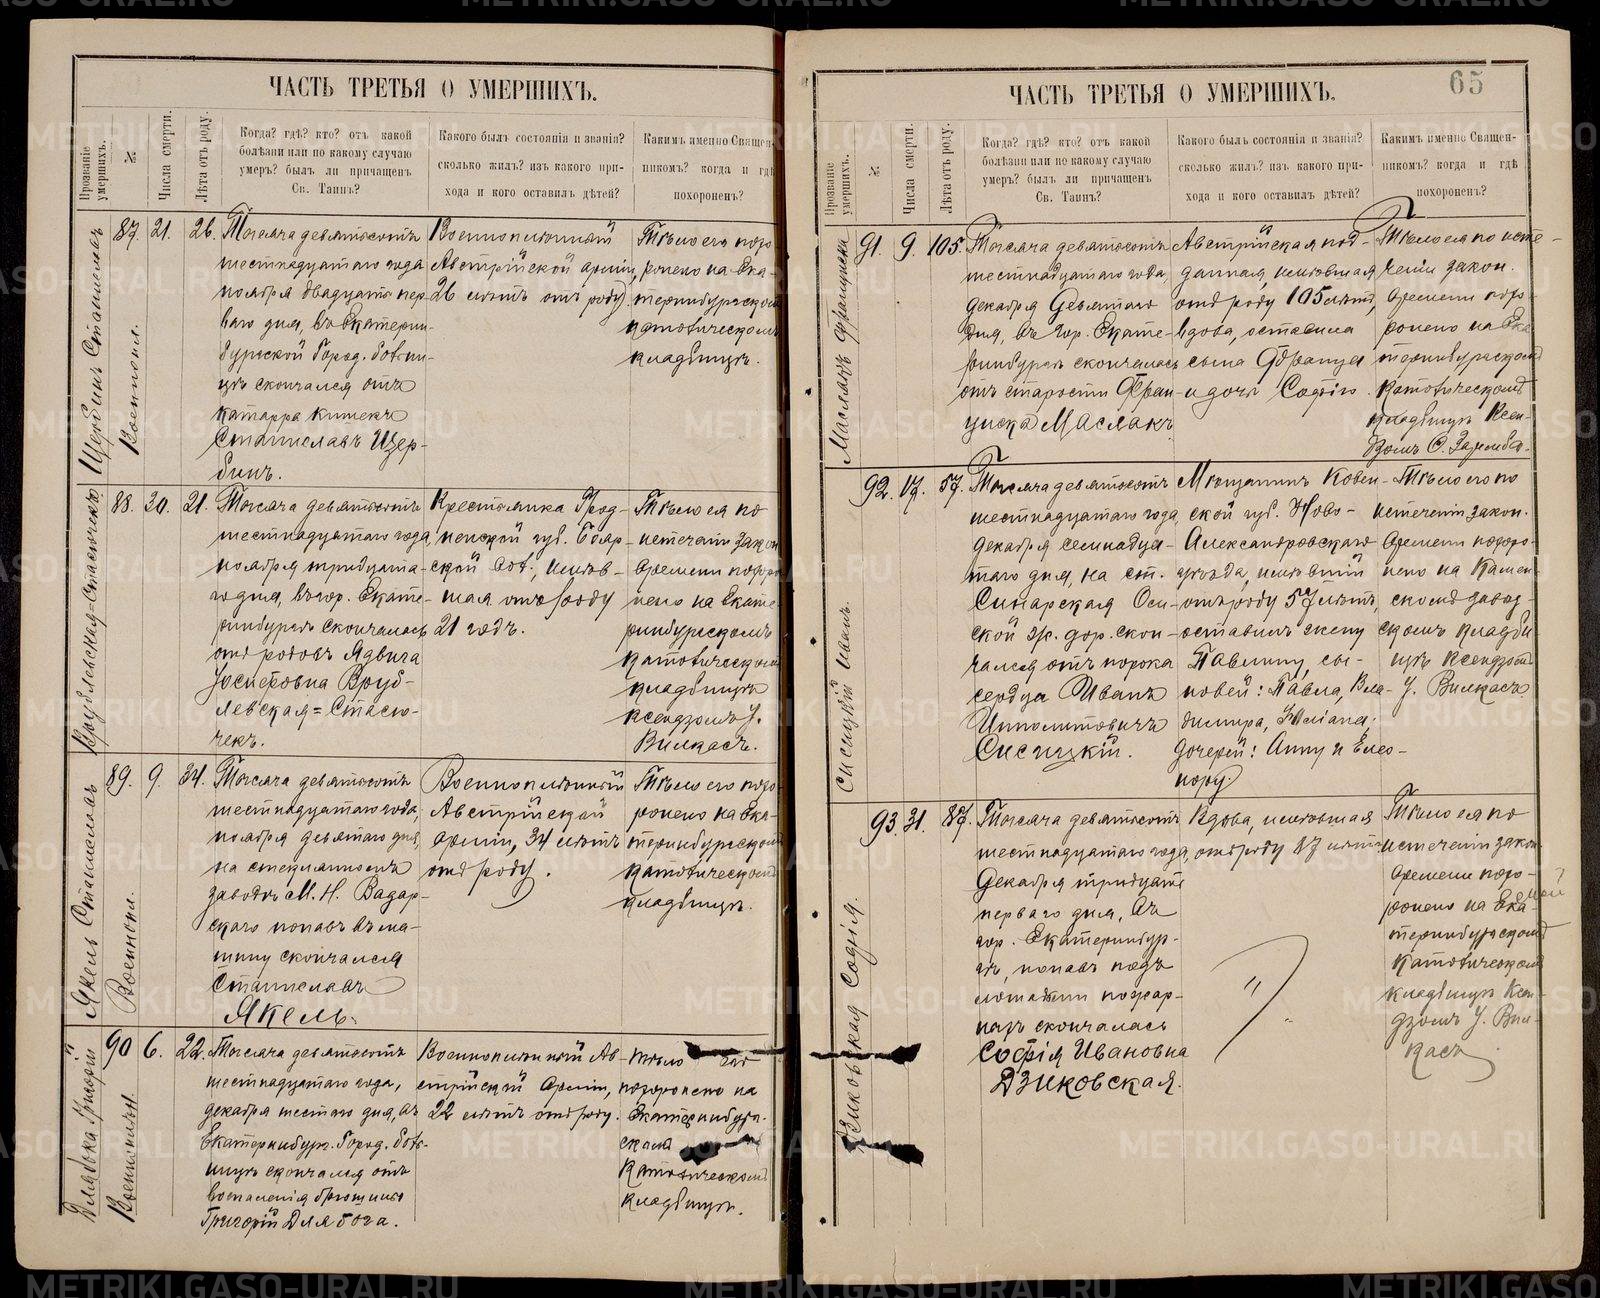 ЧАСТЬ ТРЕТЬЯ О УМЕРШИХЪ.
Прозваніе умершихъ.
№
Числа смерти.
Лѣта отъ роду.
Когда? гдѣ? кто? отъ какой
болѣзни или по какому случаю
умеръ? былъ ли причащенъ
Св. Таинъ?
Какого былъ состоянія и званія?
сколько жилъ? изъ какого при-
хода и кого оставилъ дѣтей?
Какимъ именно Священ-
никомъ? когда и гдѣ
похороненъ?
Щербинъ Станиславъ
Военнопл.
87. 21. 26.
Тысяча девятьсотъ
шестнадцатаго года
ноября двадцать пер-
ваго дня, въ Екатерин-
бургской Город. больни-
цѣ скончался отъ
катарра кишекъ
Станиславъ Щер-
бинъ.
Военноплѣнный
Австрійской арміи,
26 лѣтъ отъ роду.
Тѣло его похо-
ронено на Ека-
теринбургском
католическомъ
кладбищѣ.
Врублевская-Стасючекъ
88. 30. 21.
Тысяча девятьсотъ
шестнадцатаго года,
ноября тридцата-
го дня, въ гор. Екате-
ринбургѣ скончалась
отъ родовъ Ядвига
Іосифовна Вруб-
левская=Стасю-
чекъ.
Крестьянка Грод-
ненской губ.
вол., имѣв-
шая отъ роду
21 годъ.
Тѣло ея по
истеченіи закон
времени похоро
нено на Екате-
ринбургскомъ
католическом
кладбищѣ
ксендзомъ І.
Вилкасъ.
Якель Станиславъ
Военнопл.
89. 9. 34.
Тысяча девятьсотъ
шестнадцатаго года,
ноября девятаго дня,
на стеклянномъ
заводѣ М. Н.
скаго попавъ въ ма-
шину скончался
Станиславъ
Якель.
Военноплѣнный
Австрійской
арміи, 34 лѣтъ
отъ роду.
Тѣло его похо-
ронено на Ека-
теринбургском
католическомъ
кладбищѣ.
Григорій
Военноплѣн.
90 6. 22.
Тысяча девятьсотъ
шестнадцатаго года,
декабря шестаго дня, въ
Екатеринбург. Город. боль-
ницѣ скончался отъ
воспаленія брюшины
Григорій
Военноплѣнный Ав-
стрійской Арміи,
22 лѣтъ отъ роду.
Тѣло его
похоронено на
Екатеринбург-
скомъ
Католическомъ
кладбищѣ.
65
ЧАСТЬ ТРЕТЬЯ О УМЕРШИХЪ.
Прозваніе умершихъ.
№
Числа смерти.
Лѣта отъ роду.
Когда? гдѣ? кто? отъ какой
болѣзни или по какому случаю
умеръ? былъ ли причащенъ
Св. Таинъ?
Какого былъ состоянія и званія?
сколько жилъ? изъ какого при-
хода и кого оставилъ дѣтей?
Какимъ именно Священ-
никомъ? когда и гдѣ
похороненъ?
Маслакъ Франциска
91. 9. 105.
Тысяча девятьсотъ
шестнадцатаго года,
декабря девятаго
дня, въ гор. Екате-
ринбургѣ скончалась
отъ старости Фран-
циска Маслакъ
Австрійская под-
данная, имѣвшая
отъ роду 105 лѣтъ,
вдова, оставила
сына Франца
и дочь Софію.
Тѣло ея по исте-
ченіи закон.
времени похо-
ронено на Ека
теринбургскомъ
Католическомъ
кладбищѣ Ксен-
дзомъ С. Заремба.
Сисицкій Иванъ.
92. 17. 57.
Тысяча девятьсотъ
шестнадцатаго года,
декабря семнадца-
таго дня, на ст.
Синарская
ской ж. дор. скон-
чался отъ порока
сердца Иванъ
Ипполитовичъ
Сисицкій.
Мѣщанинъ Ковен-
ской губ. Ново-
Александровскаго
уѣзда, имѣвшій
отъ роду 57 лѣтъ,
оставилъ жену
Павлину, сы-
новей: Павла, Вла-
димира, Юліана.
дочерей: Анну и Елео-
нору.
Тѣло его по
истеченіи закон.
времени похоро-
нено на Камен-
скомъ завод-
скомъ кладби
щѣ ксендзомъ
І. Вилкасъ
Дзиковская Софія.
93. 31. 87.
Тысяча девятьсотъ
шестнадцатаго года,
Декабря тридцать
перваго дня, въ
гор. Екатеринбур-
гѣ, попавъ подъ
лошадки пожар-
ныхъ скончалась
Софія Ивановна
Дзиковская.
Вдова, имѣвшая
отъ роду 87 лѣтъ
Тѣло ея по
истеченіи закон.
времени похо-
ронено на Ека-
теринбургскомъ
Католическомъ
кладбищѣ Ксен-
дзомъ І. Вил-
касъ
METRIKI.GASO-URAL.RU